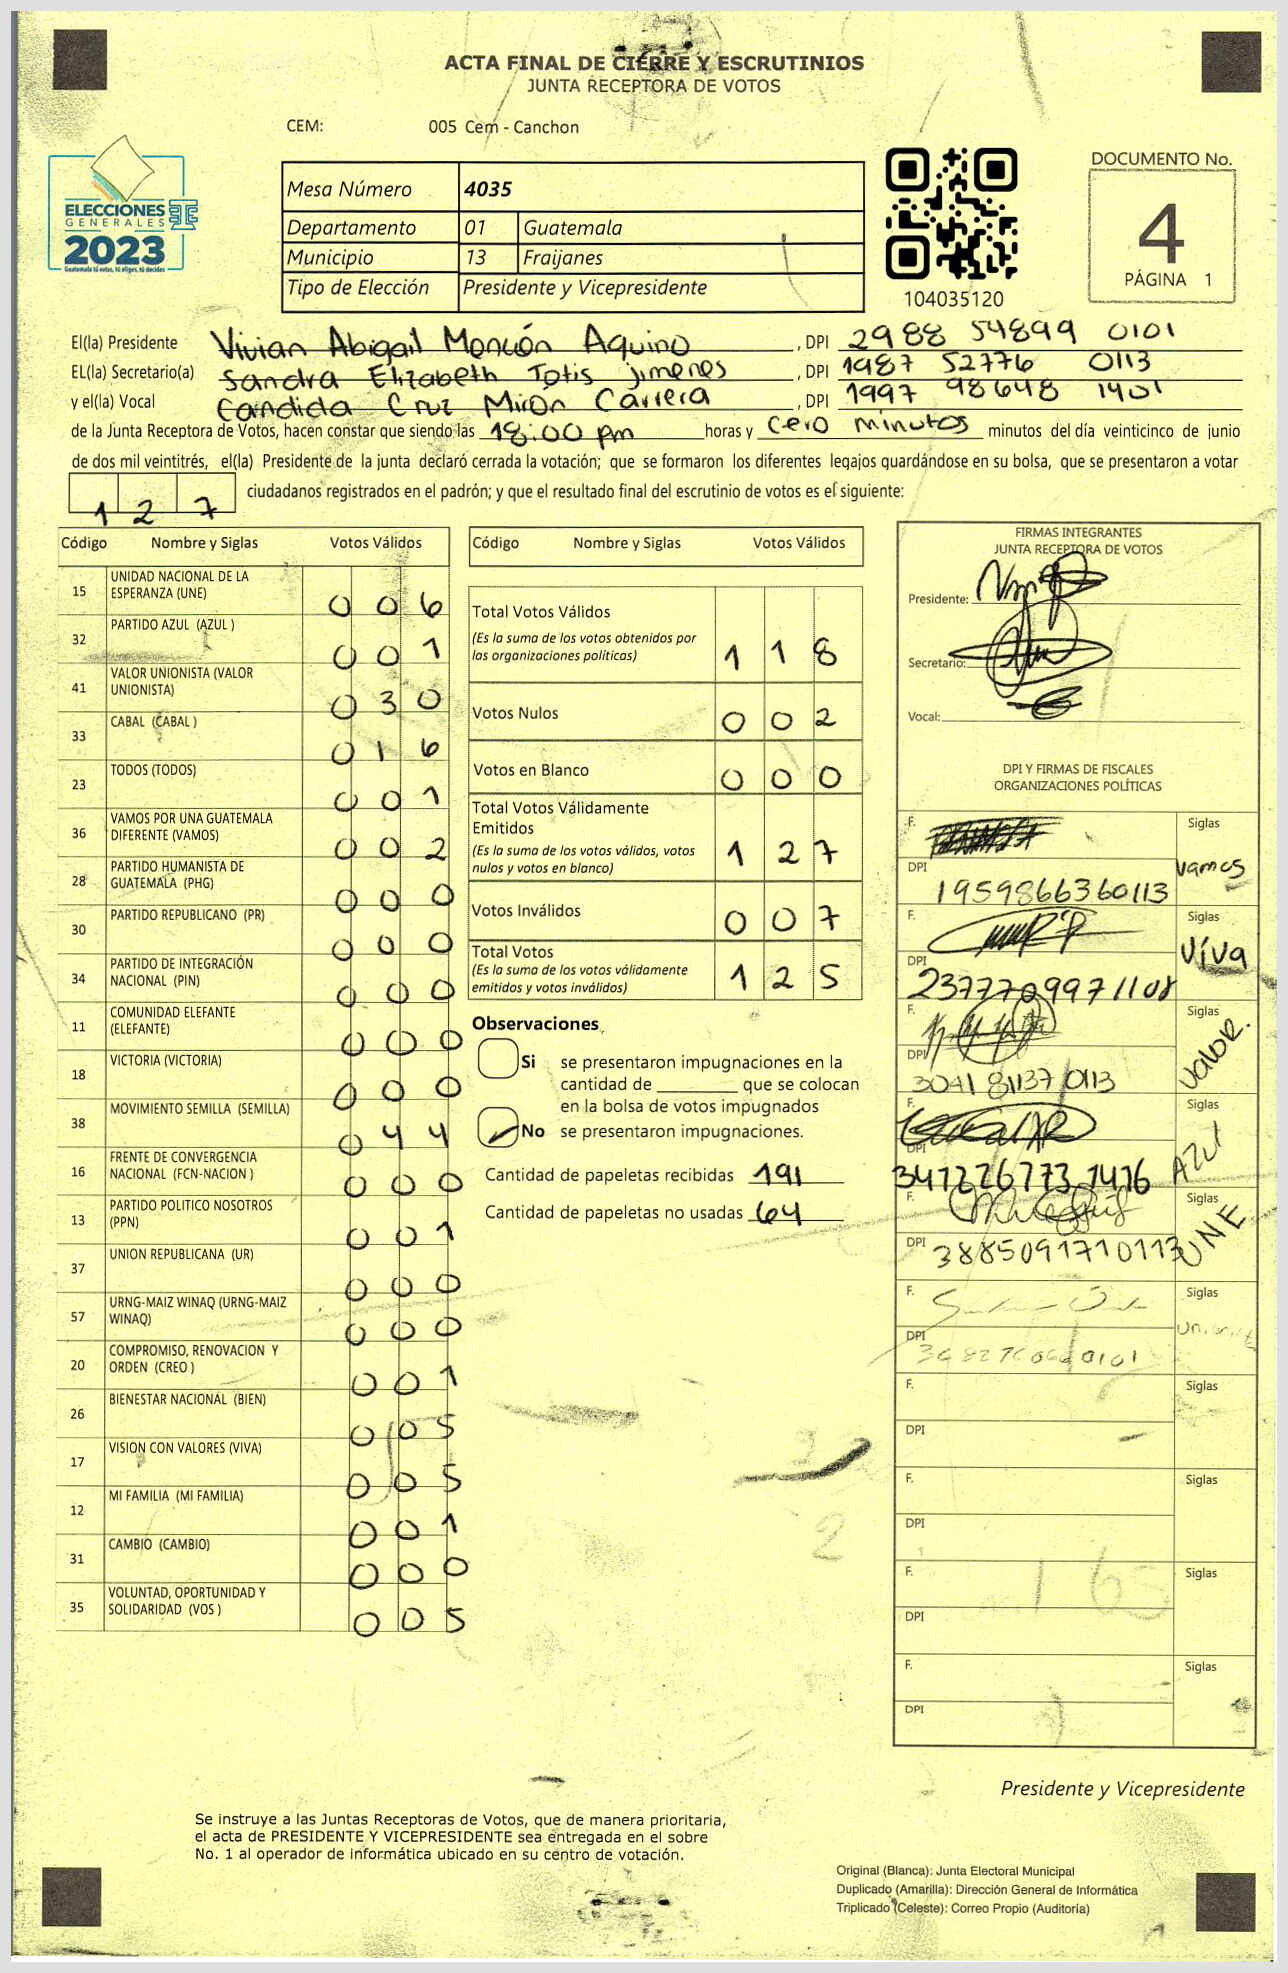 ACTA FINAL DE CIERRE Y ESCRUTINIOS
JUNTA RECEPTORA DE VOTOS
CEM: 005 Cem - Canchon
ELECCIONES
GENERALES
2023
Guatemala tú votas, tú eliges, tú decides
Mesa Número 4035
Departamento 01 Guatemala
Municipio 13 Fraijanes
Tipo de Elección Presidente y Vicepresidente
104035120
DOCUMENTO No.
4
PÁGINA 1
El(la) Presidente Vivian Abigail Monzón Aquino, DPI 2988 54899 0101
EL(la) Secretario(a) Sandra Elizabeth Totis Jimenes, DPI 1987 52776 0113
y el(la) Vocal Candida Cruz Mirón Carrera, DPI 1997 98648 1401
de la Junta Receptora de Votos, hacen constar que siendo las 18:00 pm horas y cero minutos minutos del día veinticinco de junio
de dos mil veintitrés, el(la) Presidente de la junta declaró cerrada la votación; que se formaron los diferentes legajos quardándose en su bolsa, que se presentaron a votar
127 ciudadanos registrados en el padrón; y que el resultado final del escrutinio de votos es el siguiente:
Código Nombre y Siglas Votos Válidos
15 UNIDAD NACIONAL DE LA ESPERANZA (UNE) 006
32 PARTIDO AZUL (AZUL ) 001
41 VALOR UNIONISTA (VALOR UNIONISTA) 030
33 CABAL (CABAL ) 016
23 TODOS (TODOS) 001
36 VAMOS POR UNA GUATEMALA DIFERENTE (VAMOS) 002
28 PARTIDO HUMANISTA DE GUATEMALA (PHG) 000
30 PARTIDO REPUBLICANO (PR) 000
34 PARTIDO DE INTEGRACIÓN NACIONAL (PIN) 000
11 COMUNIDAD ELEFANTE (ELEFANTE) 000
18 VICTORIA (VICTORIA) 000
38 MOVIMIENTO SEMILLA (SEMILLA) 044
16 FRENTE DE CONVERGENCIA NACIONAL (FCN-NACION ) 000
13 PARTIDO POLITICO NOSOTROS (PPN) 001
37 UNION REPUBLICANA (UR) 000
57 URNG-MAIZ WINAQ (URNG-MAIZ WINAQ) 000
20 COMPROMISO, RENOVACION Y ORDEN (CREO ) 001
26 BIENESTAR NACIONAL (BIEN) 005
17 VISION CON VALORES (VIVA) 005
12 MI FAMILIA (MI FAMILIA) 001
31 CAMBIO (CAMBIO) 000
35 VOLUNTAD, OPORTUNIDAD Y SOLIDARIDAD (VOS ) 005
Código Nombre y Siglas Votos Válidos
Total Votos Válidos 118
(Es la suma de los votos obtenidos por
las organizaciones politicas)
Votos Nulos 002
Votos en Blanco 000
Total Votos Válidamente
Emitidos 127
(Es la suma de los votos válidos, votos
nulos y votos en blanco)
Votos Inválidos 007
Total Votos 125
(Es la suma de los votos válidamente
emitidos y votos inválidos)
Observaciones
Si se presentaron impugnaciones en la
cantidad de ________ que se colocan
en la bolsa de votos impugnados
No se presentaron impugnaciones.
Cantidad de papeletas recibidas 191
Cantidad de papeletas no usadas 64
FIRMAS INTEGRANTES
JUNTA RECEPTORA DE VOTOS
Presidente:
Secretario:
Vocal:
DPI Y FIRMAS DE FISCALES
ORGANIZACIONES POLÍTICAS
F. Siglas vamos
DPI 1959866360113
F. Siglas Viva
DPI 2377709971108
F. Siglas Valor.
DPI 3041 81137 0113
F. Siglas Azul
DPI 347226773 1416
F. Siglas UNE
DPI 3885091710113
F. Siglas
DPI
F. Siglas
DPI
F. Siglas
DPI
F. Siglas
DPI
F. Siglas
DPI
Presidente y Vicepresidente
Se instruye a las Juntas Receptoras de Votos, que de manera prioritaria,
el acta de PRESIDENTE Y VICEPRESIDENTE sea entregada en el sobre
No. 1 al operador de informática ubicado en su centro de votación.
Original (Blanca): Junta Electoral Municipal
Duplicado (Amarilla): Dirección General de Informática
Triplicado (Celeste): Correo Propio (Auditoría)